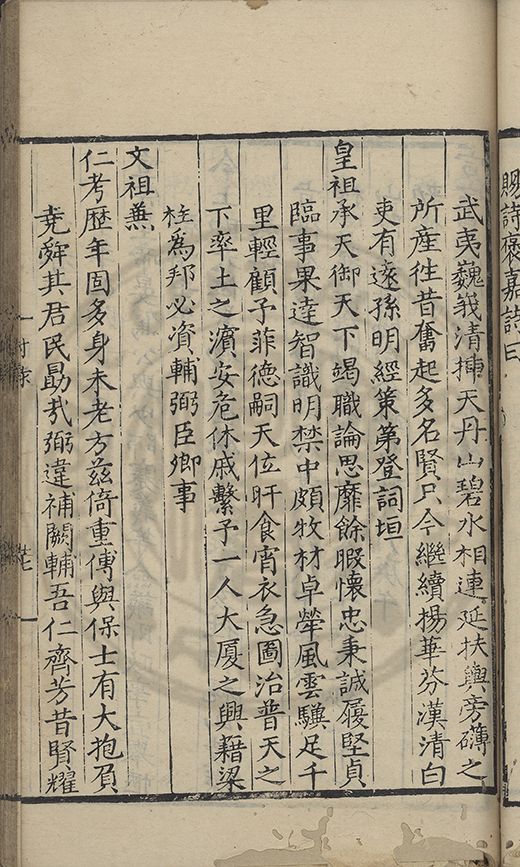 賜詩褒嘉詩曰
武夷巍峩清揷天丹山碧水相連延扶輿旁礴之
所產往昔奮起多名賢只今繼續揚華芬漢清白
吏有逺孫明經策第登詞垣
皇祖承天御天下竭職論思靡餘暇懷忠秉誠履堅貞
臨事果達智識明禁中頗牧材卓犖風雲驥足千
里輕顧予菲德嗣天位旰食宵衣急圖治普天之
下率土之濵安危休戚繫予一人大厦之興藉梁
柱為邦必資輔弼臣卿事
文祖兼
仁考歴年固多身未老方兹倚重傅與保士有大抱負
堯舜其君民勖㢤弼違補闕輔吾仁齊芳昔賢耀